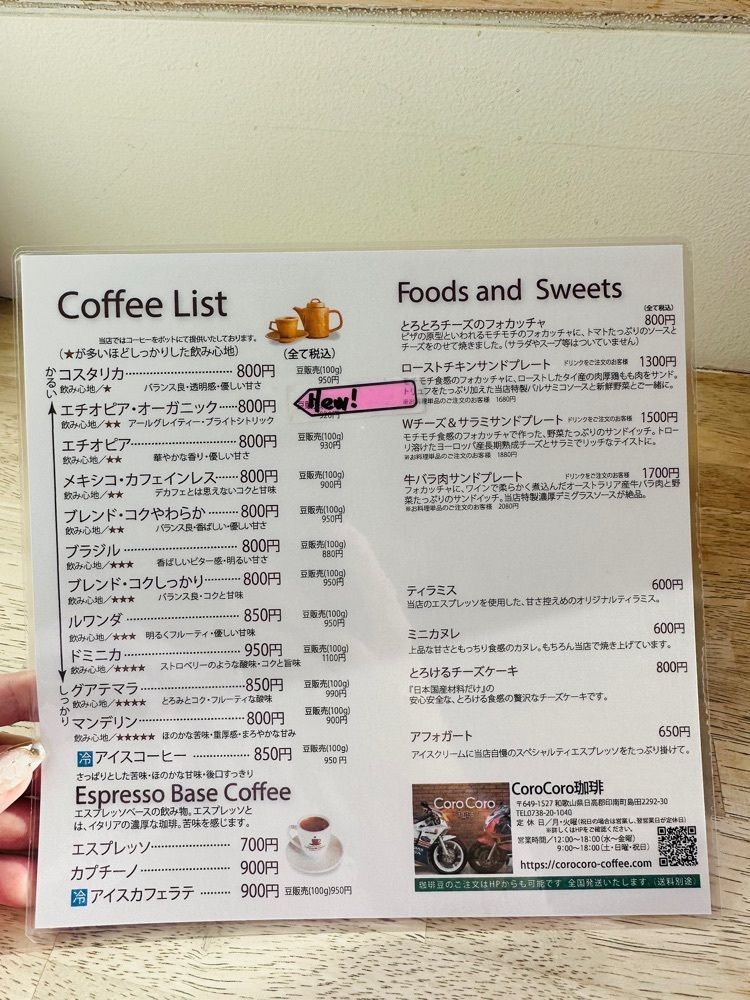 Coffee List
当店ではコーヒーをポットにて提供いたしております。
(★が多いほどしっかりした飲み心地)
(全て税込)
かるい
コスタリカ 800円 豆販売(100g) 950円
飲み心地／★ バランス良・透明感・優しい甘さ
エチオピア・オーガニック 800円
New!
飲み心地／★★ アールグレイティー・ブライトシトリック
エチオピア 800円 豆販売(100g) 930円
飲み心地／★★ 華やかな香り・優しい甘さ
メキシコ・カフェインレス 800円 豆販売(100g) 900円
飲み心地／★★ デカフェとは思えないコクと甘味
ブレンド・コクやわらか 800円 豆販売(100g) 950円
飲み心地／★★ バランス良・香ばしい・優しい甘さ
ブラジル 800円 豆販売(100g) 880円
飲み心地／★★★ 香ばしいビター感・明るい甘さ
ブレンド・コクしっかり 800円 豆販売(100g) 950円
飲み心地／★★★ バランス良・コクと甘味
ルワンダ 850円 豆販売(100g) 950円
飲み心地／★★★ 明るくフルーティ・優しい甘味
ドミニカ 950円 豆販売(100g) 1100円
飲み心地／★★★★ ストロベリーのような酸味・コクと旨味
グアテマラ 850円 豆販売(100g) 990円
飲み心地／★★★★ とろみとコク・フルーティな酸味
マンデリン 800円 豆販売(100g) 900円
飲み心地／★★★★★ ほのかな苦味・重厚感・まろやかな甘み
しっかり
冷 アイスコーヒー 850円 950円
さっぱりとした苦味・ほのかな甘味・後口すっきり
Espresso Base Coffee
エスプレッソベースの飲み物。エスプレッソと
は、イタリアの濃厚な珈琲。苦味を感じます。
エスプレッソ 700円
カプチーノ 900円
冷 アイスカフェラテ 900円 豆販売(100g)950円
Foods and Sweets
(全て税込)
とろとろチーズのフォカッチャ 800円
ピザの原型といわれるモチモチのフォカッチャに、トマトたっぷりのソースと
チーズをのせて焼きました。(サラダやスープ等はついていません)
ローストチキンサンドプレート ドリンクをご注文のお客様 1300円
モチ食感のフォカッチャに、ローストしたタイ産の肉厚鶏もも肉をサンド。
トリュフをたっぷり加えた当店特製バルサミコソースと新鮮野菜とご一緒に。
お料理単品のご注文のお客様 1680円
Wチーズ＆サラミサンドプレート ドリンクをご注文のお客様 1500円
モチモチ食感のフォカッチャで作った、野菜たっぷりのサンドイッチ。トロー
リ溶けたヨーロッパ産長期熟成チーズとサラミでリッチなテイストに。
※お料理単品のご注文のお客様 1880円
牛バラ肉サンドプレート ドリンクをご注文のお客様 1700円
フォカッチャに、ワインで柔らかく煮込んだオーストラリア産牛バラ肉と野
菜たっぷりのサンドイッチ。当店特製濃厚デミグラスソースが絶品。
※お料理単品のご注文のお客様 2080円
ティラミス 600円
当店のエスプレッソを使用した、甘さ控えめのオリジナルティラミス。
ミニカヌレ 600円
上品な甘さともっちり食感のカヌレ。もちろん当店で焼き上げています。
とろけるチーズケーキ 800円
『日本国産材料だけ』の
安心安全な、とろける食感の贅沢なチーズケーキです。
アフォガート 650円
アイスクリームに当店自慢のスペシャルティエスプレッソをたっぷり掛けて。
CoroCoro
CoroCoro珈琲
〒649-1527 和歌山県日高郡印南町島田2292-30
TEL0738-20-1040
定 休 日／月・火曜(祝日の場合は営業し、翌営業日が定休日)
※詳しくはHPをご確認ください。
営業時間／12:00〜18:00(水〜金曜)
9:00〜18:00(土・日曜・祝日)
https://corocoro-coffee.com
珈琲豆のご注文はHPからも可能です 全国発送いたします (送料別途)